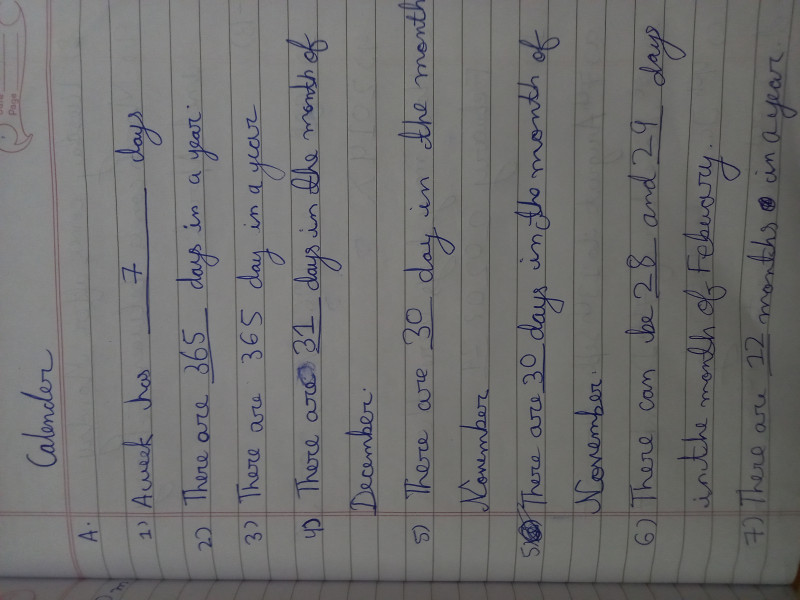 Date
Page
Calender
A.
1) A week has 7 days
2) There are 365 days in a year.
3) There are 365 day in a year
4) There are 31 days in the month of
December.
5) There are 30 day in the month
November
5) There are 30 days in the month of
November.
6) There can be 28 and 29 days
in the month of Febuary.
7) There are 12 months in a year